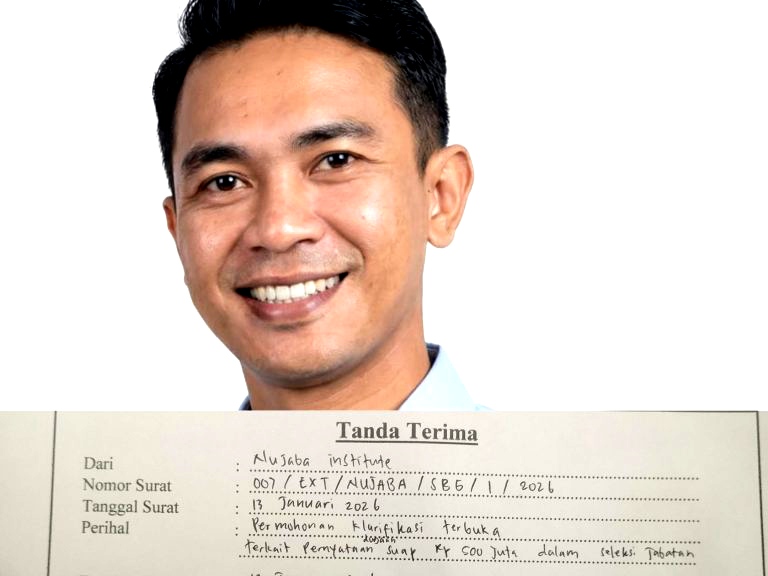 Tanda Terima
Dari : Nujaba institute
Nomor Surat : 007 / EXT / NUJABA / SBE / 1 / 2026
Tanggal Surat : 13 Januari 2026
Perihal : Permohonan klarifikasi terbuka
terkait Pernyataan dugaan suap Rp 500 Juta dalam seleksi Jabatan